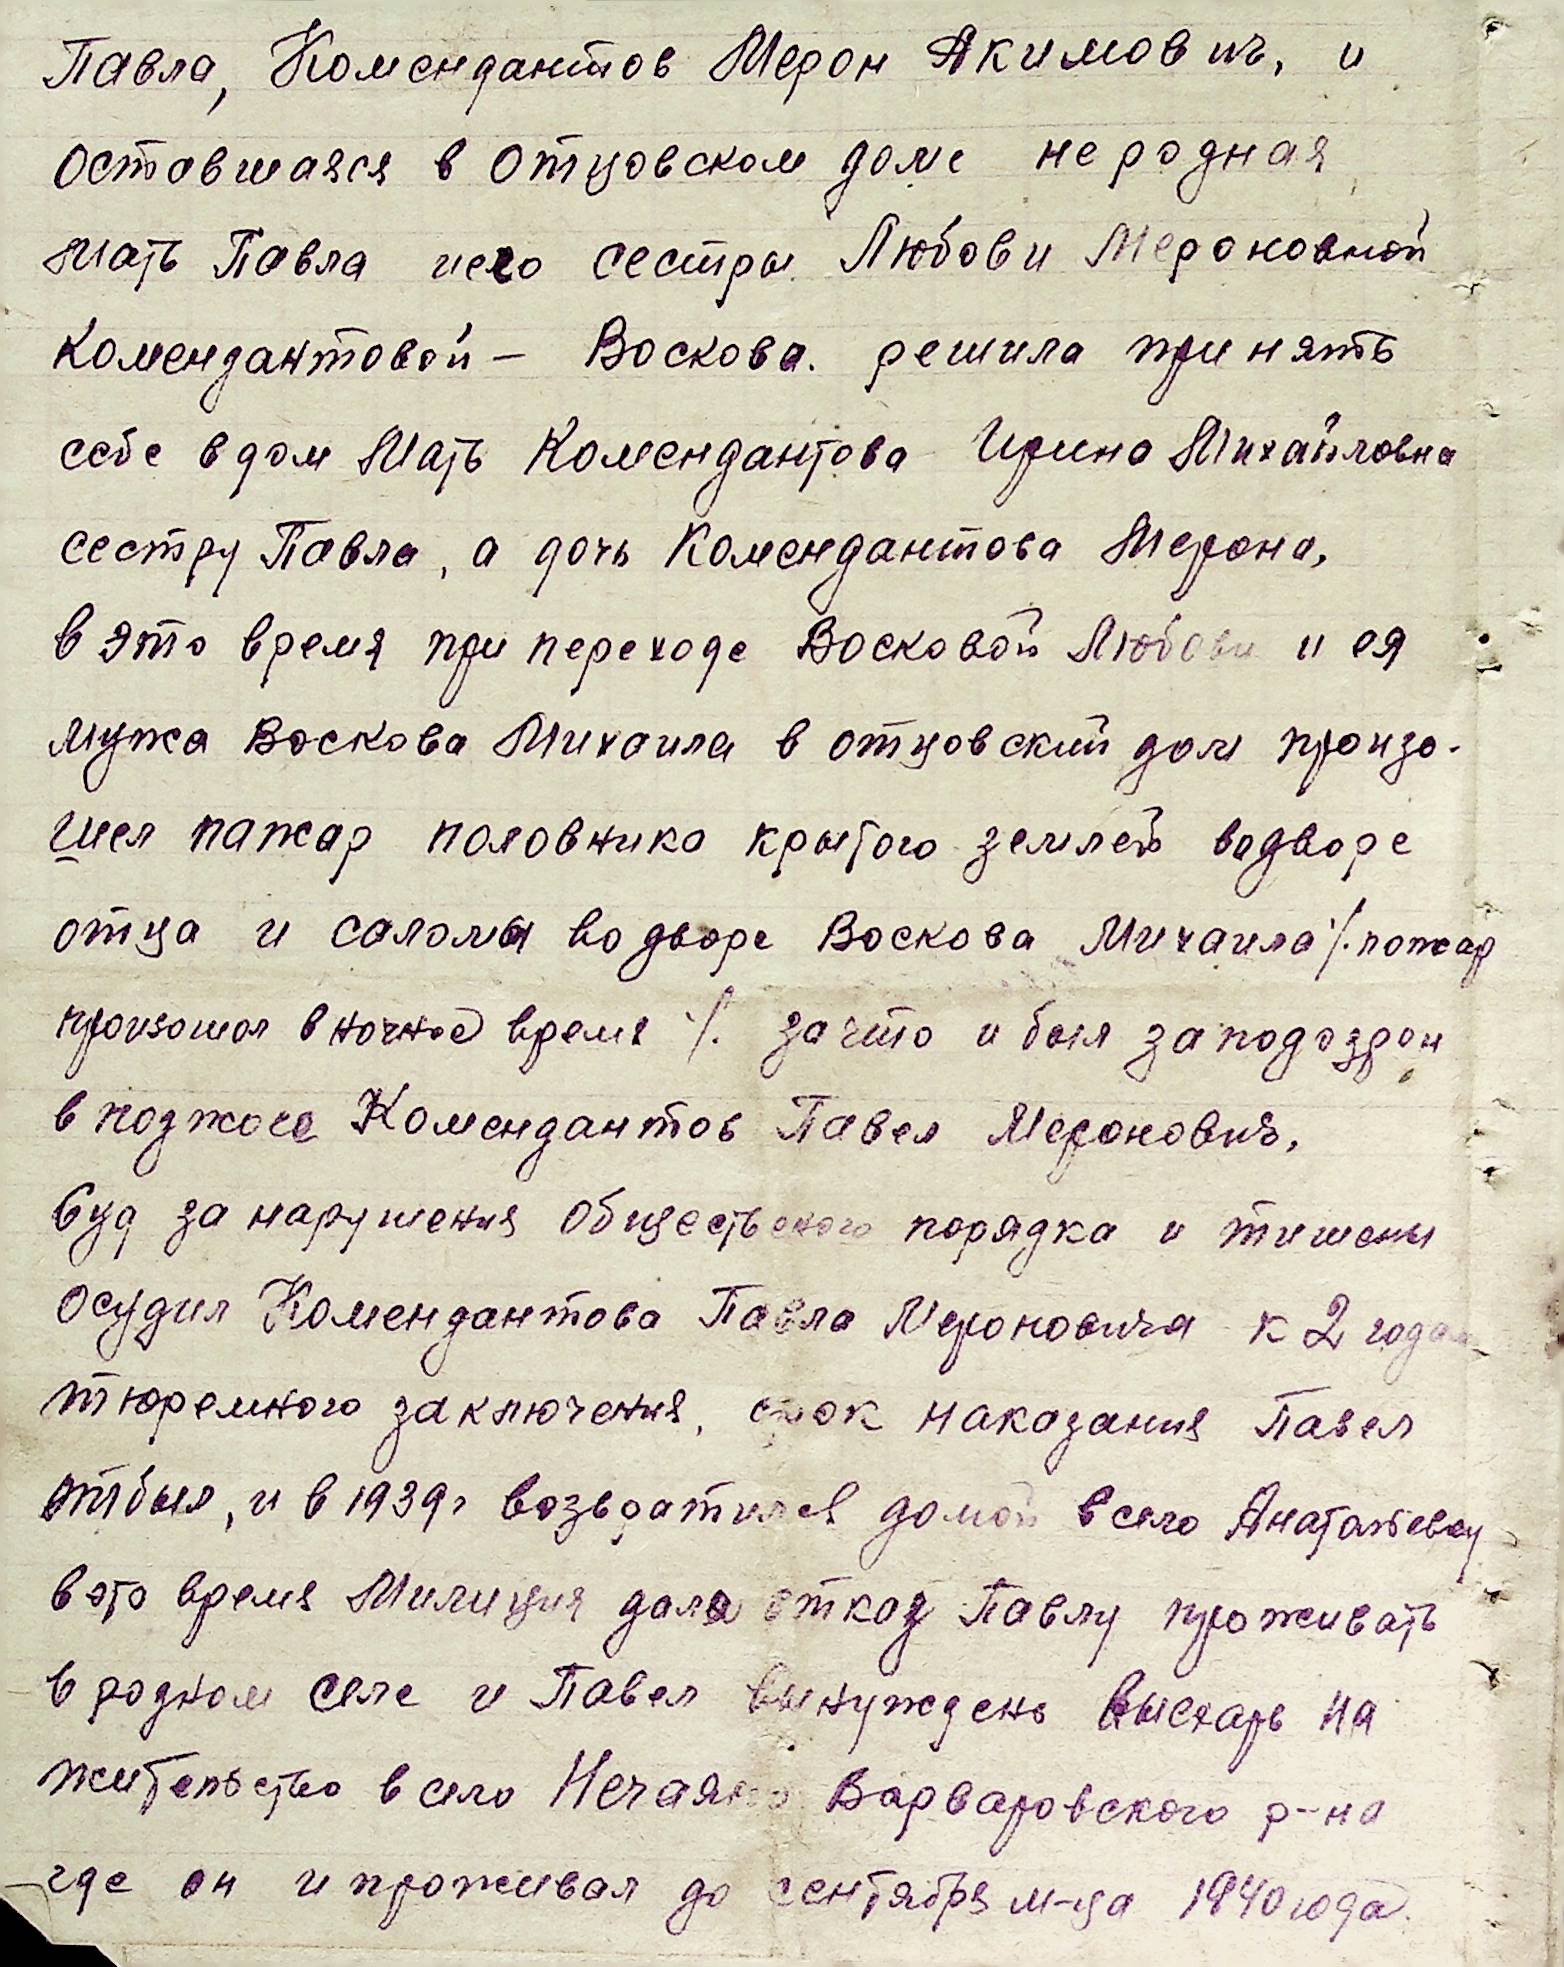 Павла, Комендантов Мерон Акимович, и
оставшаяся в отцовском доме не родная
мать Павла иего сестры Любови Мероновной
Комендантовой – Воскова. решила принять
себе в дом Мать Комендантова Ирина Михайловна
сестру Павла, а дочь Комендантова Мерона,
в это время при переходе Восковой Любови и ея
мужа Воскова Михаила в отцовский дом произо-
шел пажар половника крытого землей водворе
отца и саломы во дворе Воскова Михаила /. пожар
произошол в ночное время /. за что и был заподозрон
в поджоге Комендантов Павел Меронович,
Суд за нарушения общественого порядка и тишены
осудил Комендантова Павла Мероновича к 2 годам
тюремного заключения, срок наказания Павел
отбыл, и в 1939г возвратился домой всело Анатольевку
в это время Милиция дала отказ Павлу проживать
в родном селе и Павел вынуждень выехать на
жительство в село Нечаяно Варваровского р-на
где он и проживал до сентября м-ца 1940 года.